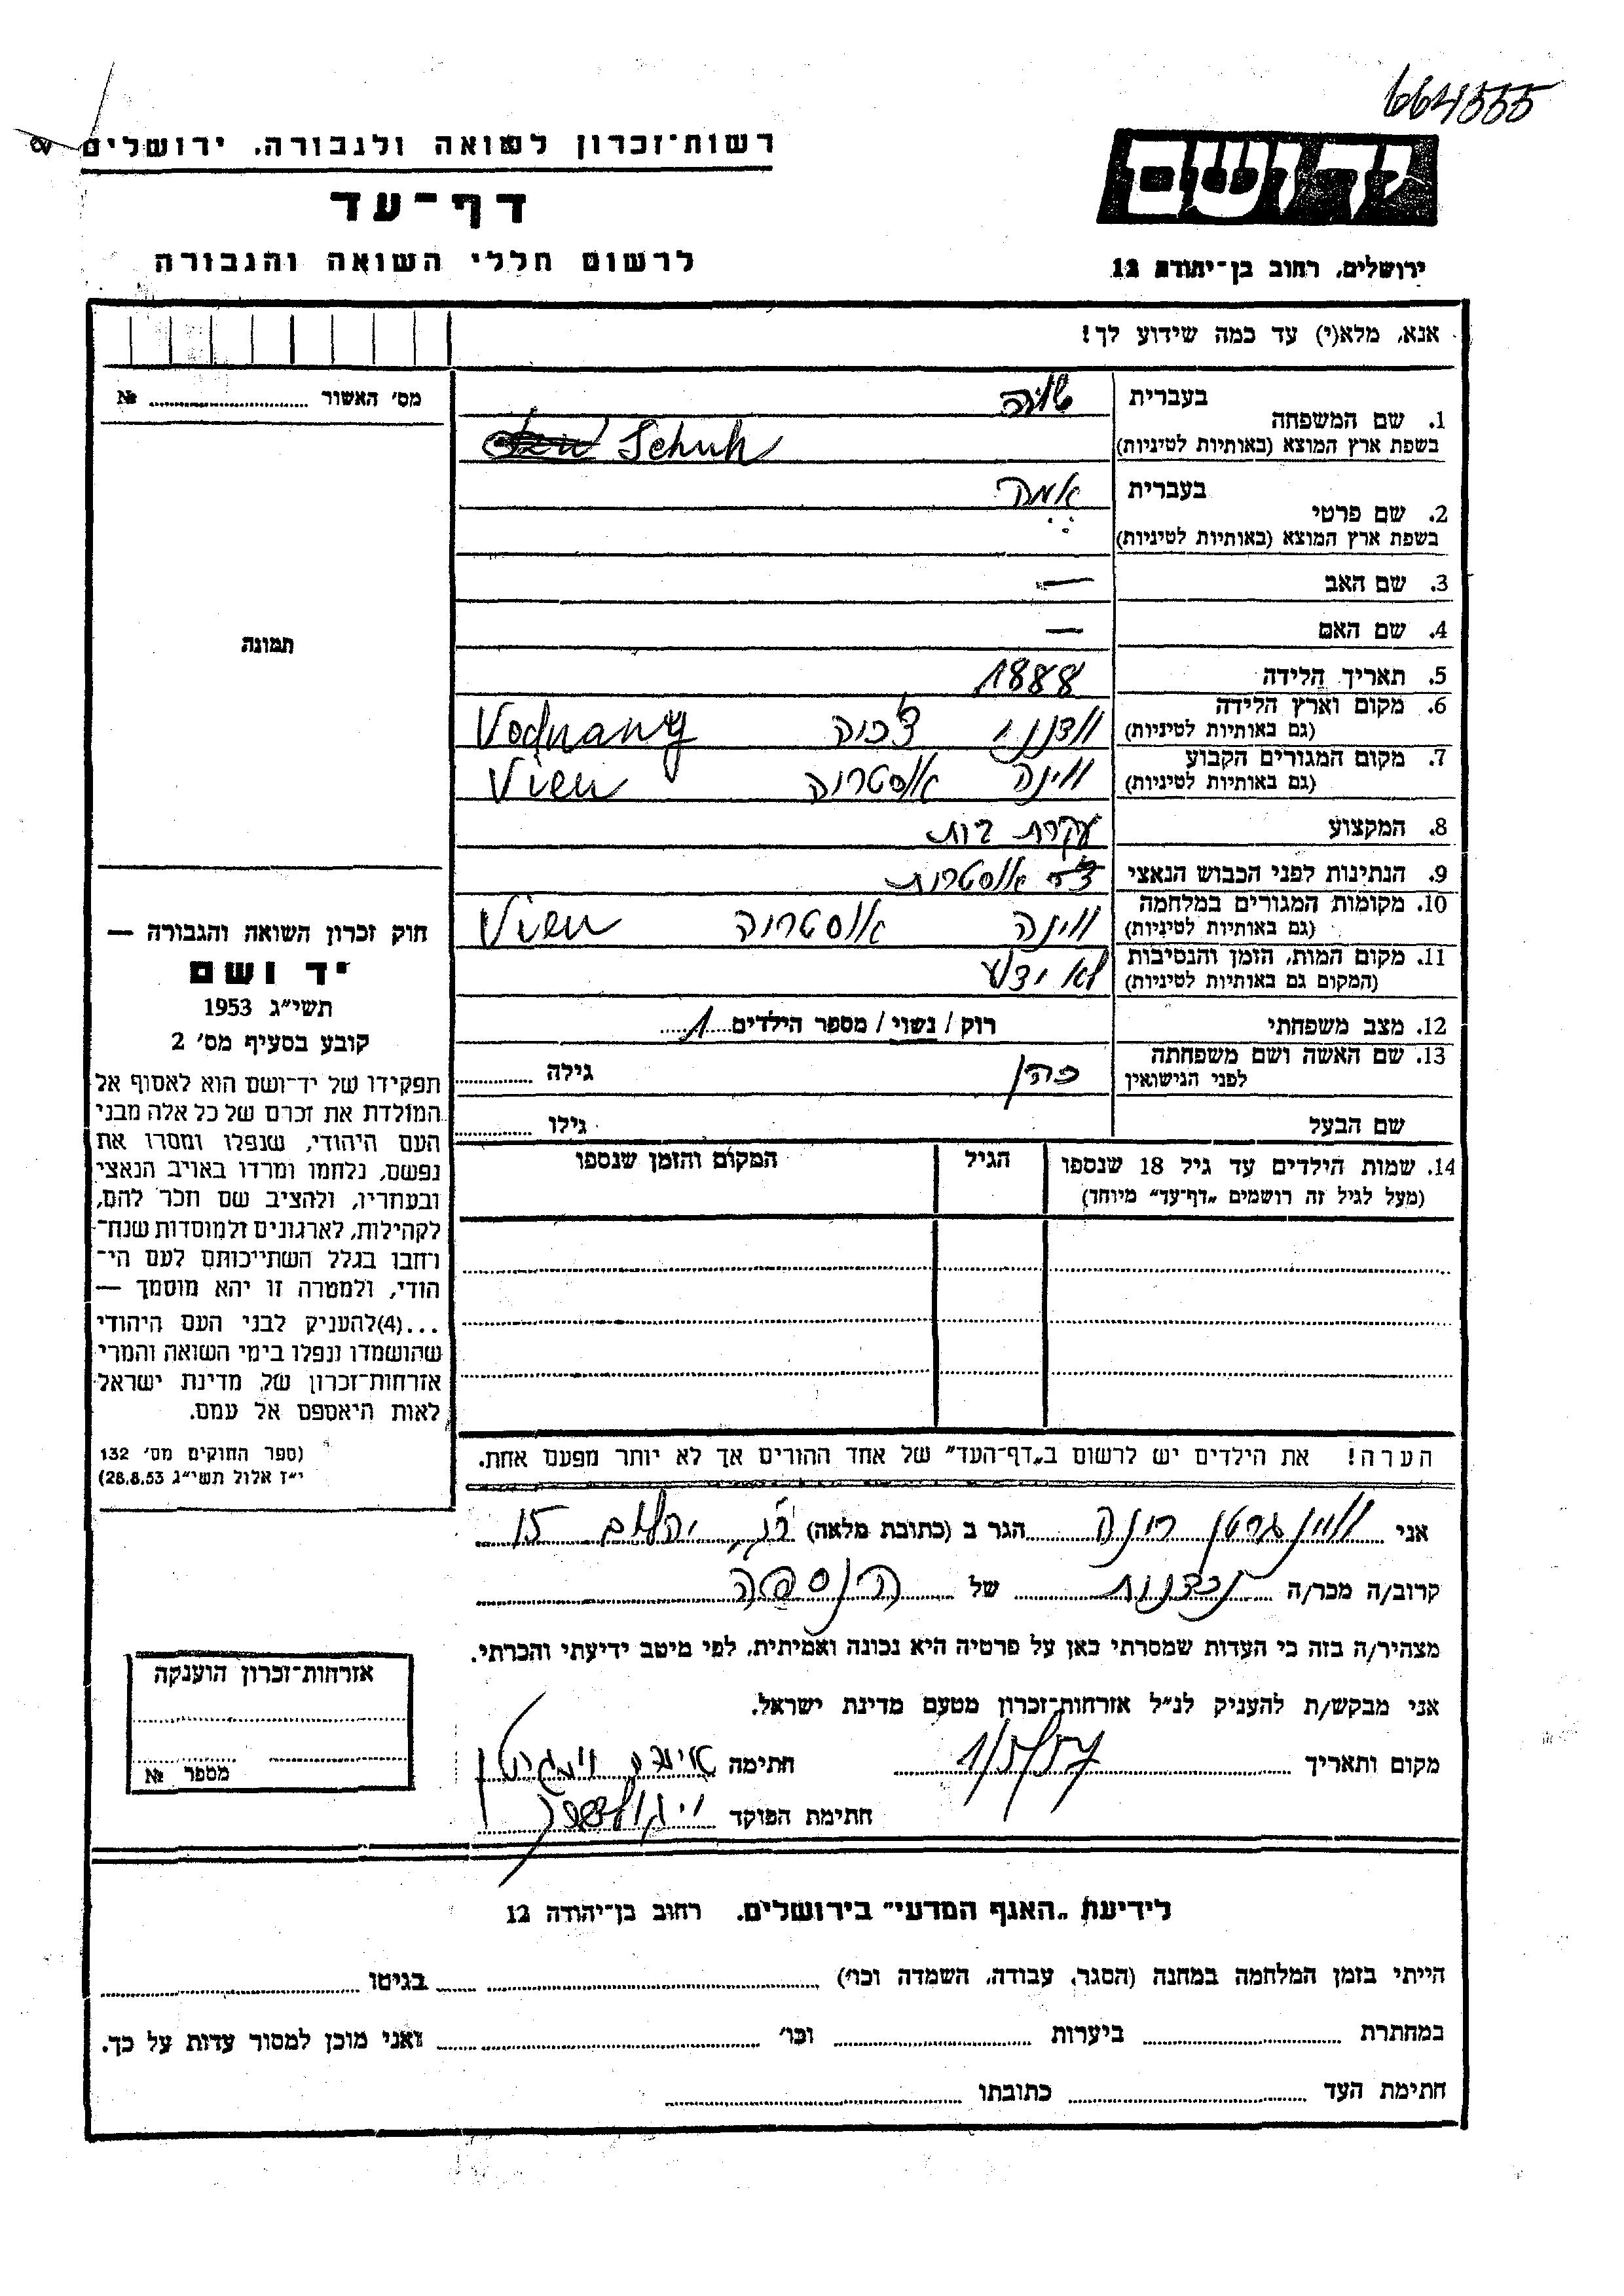 664555
רשות־זכרון לשואה ולגבורה. ירושלים
דף־עד
לרשום חללי השואה והגבורה
ידושם
ירושלים, רחוב בן־יהודה 12
אנא, מלא(י) עד כמה שידוע לך!
מס׳ האשור № 
תמונה
1. שם המשפחה
בעברית שוה
בשפת ארץ המוצא (באותיות לטיניות) Schuh
2. שם פרטי
בעברית אמה
בשפת ארץ המוצא (באותיות לטיניות)
3. שם האב —
4. שם האם —
5. תאריך הלידה 1888
6. מקום וארץ הלידה
(גם באותיות לטיניות) וודנני צ'כיה Vodnany
7. מקום המגורים הקבוע
(גם באותיות לטיניות) ווינה אוסטריה Vien
8. המקצוע עקרת בית
9. הנתינות לפני הכבוש הנאצי אוסטרית
10. מקומות המגורים במלחמה
(גם באותיות לטיניות) ווינה אוסטריה Vien
11. מקום המות, הזמן והנסיבות
(המקום גם באותיות לטיניות) לא ידוע
12. מצב משפחתי רוק / נשוי / מספר הילדים 1
13. שם האשה ושם משפחתה
לפני הנישואין כהן גילה
שם הבעל גילו
14. שמות הילדים עד גיל 18 שנספו
(מעל לגיל זה רושמים „דף־עד” מיוחד)
הגיל
המקום והזמן שנספו
חוק זכרון השואה והגבורה —
יד ושם
תשי״ג 1953
קובע בסעיף מס׳ 2
תפקידו של יד־ושם הוא לאסוף אל
המולדת את זכרם של כל אלה מבני
העם היהודי, שנפלו ומסרו את
נפשם, נלחמו ומרדו באויב הנאצי
ובעוזריו, ולהציב שם וזכר להם,
לקהילות, לארגונים ולמוסדות שנח־
רחבו בגלל השתייכותם לעם הי־
הודי, ולמטרה זו יהא מוסמך —
...(4)להעניק לבני העם היהודי
שהושמדו ונפלו בימי השואה והמרי
אזרחות־זכרון של מדינת ישראל
לאות היאספם אל עמם.
(ספר החוקים מס׳ 132
י״ז אלול תשי״ג 28.8.53)
הערה! את הילדים יש לרשום ב„דף־העד” של אחד ההורים אך לא יותר מפעם אחת.
אני ווינגרטן רינה הגר ב (כתובת מלאה) 15
קרוב/ה מכר/ה נכדנות של הנספה
מצהיר/ה בזה כי העדות שמסרתי כאן על פרטיה היא נכונה ואמיתית, לפי מיטב ידיעתי והכרתי.
אני מבקש/ת להעניק לנ״ל אזרחות־זכרון מטעם מדינת ישראל.
מקום ותאריך 1/5/57 חתימה
חתימת הפוקד
אזרחות־זכרון הוענקה
מספר №
לידיעת „האגף המדעי” בירושלים. רחוב בן־יהודה 12
הייתי בזמן המלחמה במחנה (הסגר, עבודה, השמדה וכו׳) בגיטו
במחתרת ביערות וכו׳ ואני מוכן למסור עדות על כך.
חתימת העד כתובתו